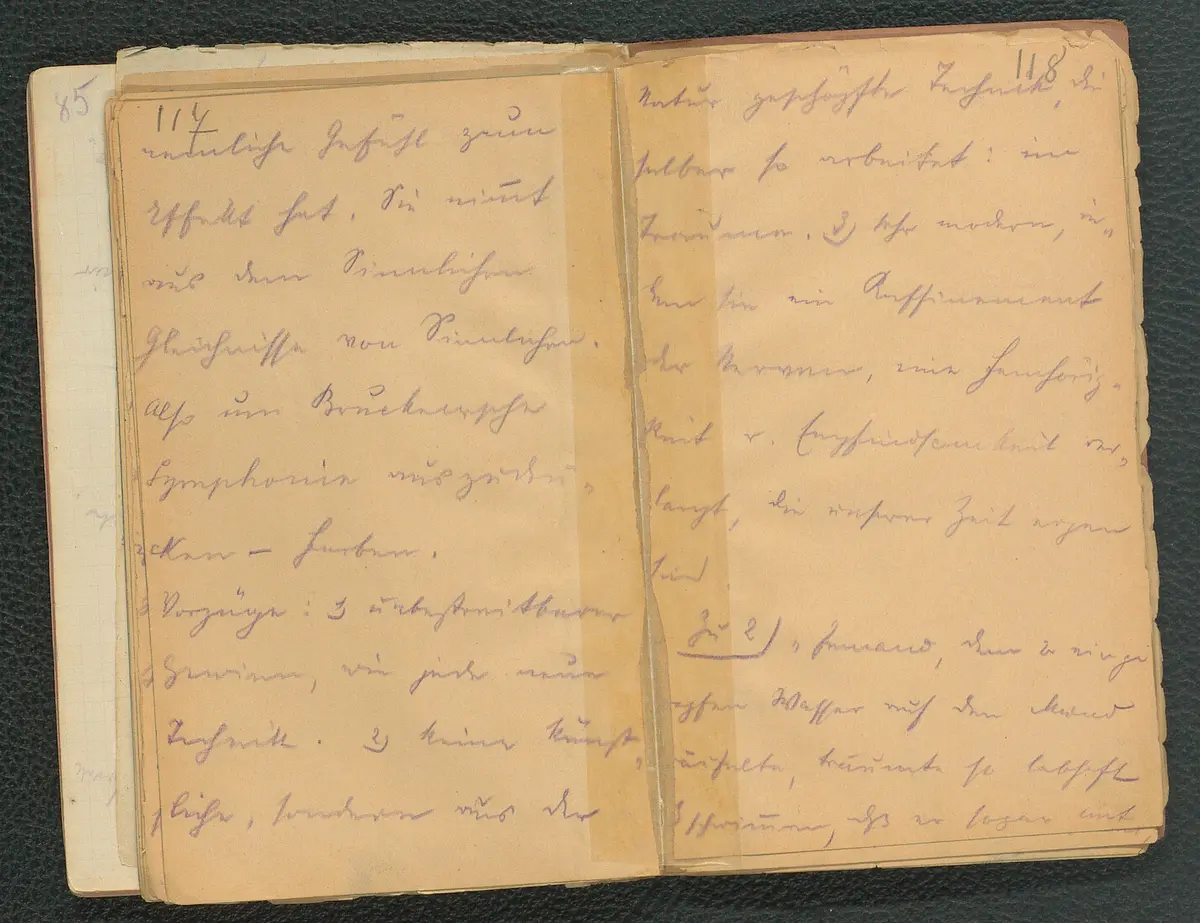 85
117
nemliche Gefühl zum
Effekt hat. Sie nim̄t
aus dem Sinnlichen
Gleichnisse von Sinnlichen.
Also um Brucknersche
Symphonie auszudrü-
cken – Farben.
Vorzüge: 1) unbestreitbarer
Gewinn, wie jede neue
Technik. 2) keine künst-
liche, sondern aus der
118
Natur geschöpfte Technik, die
selber so arbeitet: im
Traume. 3) sehr modern, in-
dem sie ein Raffinement
der Nerven, eine Feinhörig-
keit u. Empfindsamkeit ver-
langt, die unserer Zeit eigen
sind
Zu 2) „Jemand, dem
Wasser auf den Mund
träufelte, träumte so lebhaft
schwim̄en, dß er sogar mit